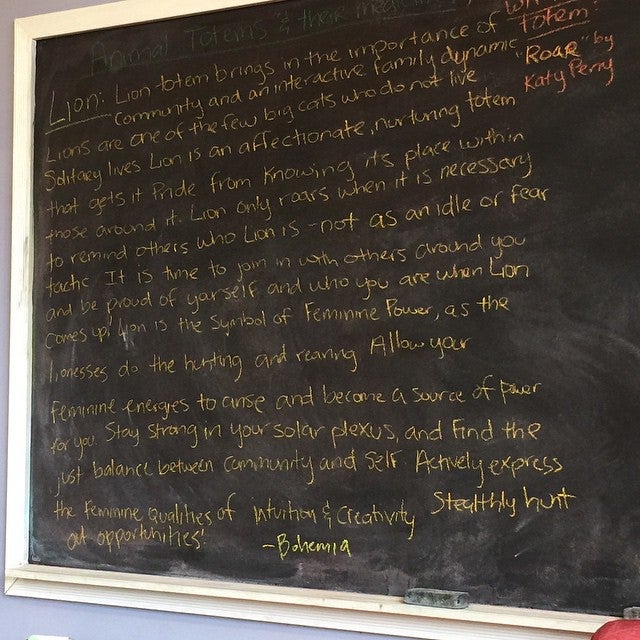 Animal Totems & their medicine
Totem:
"Roar" by
Katy Perry
Lion: Lion totem brings in the importance of
community and an interactive family dynamic
Lions are one of the few big cats who do not live
Solitary lives Lion is an affectionate, nurturing totem
that gets it Pride from knowing its place within
those around it. Lion only roars when it is necessary
to remind others who Lion is - not as an idle or fear
tactic It is time to join in with others around you
and be proud of yourself and who you are when Lion
comes up! Lion is the symbol of Feminine Power, as the
lionesses do the hunting and rearing Allow your
feminine energies to arise and become a source of power
for you. Stay strong in your solar plexus, and find the
just balance between community and self Actively express
the feminine qualities of intuition & creativity Stealthly hunt
out opportunities!
-Bohemia